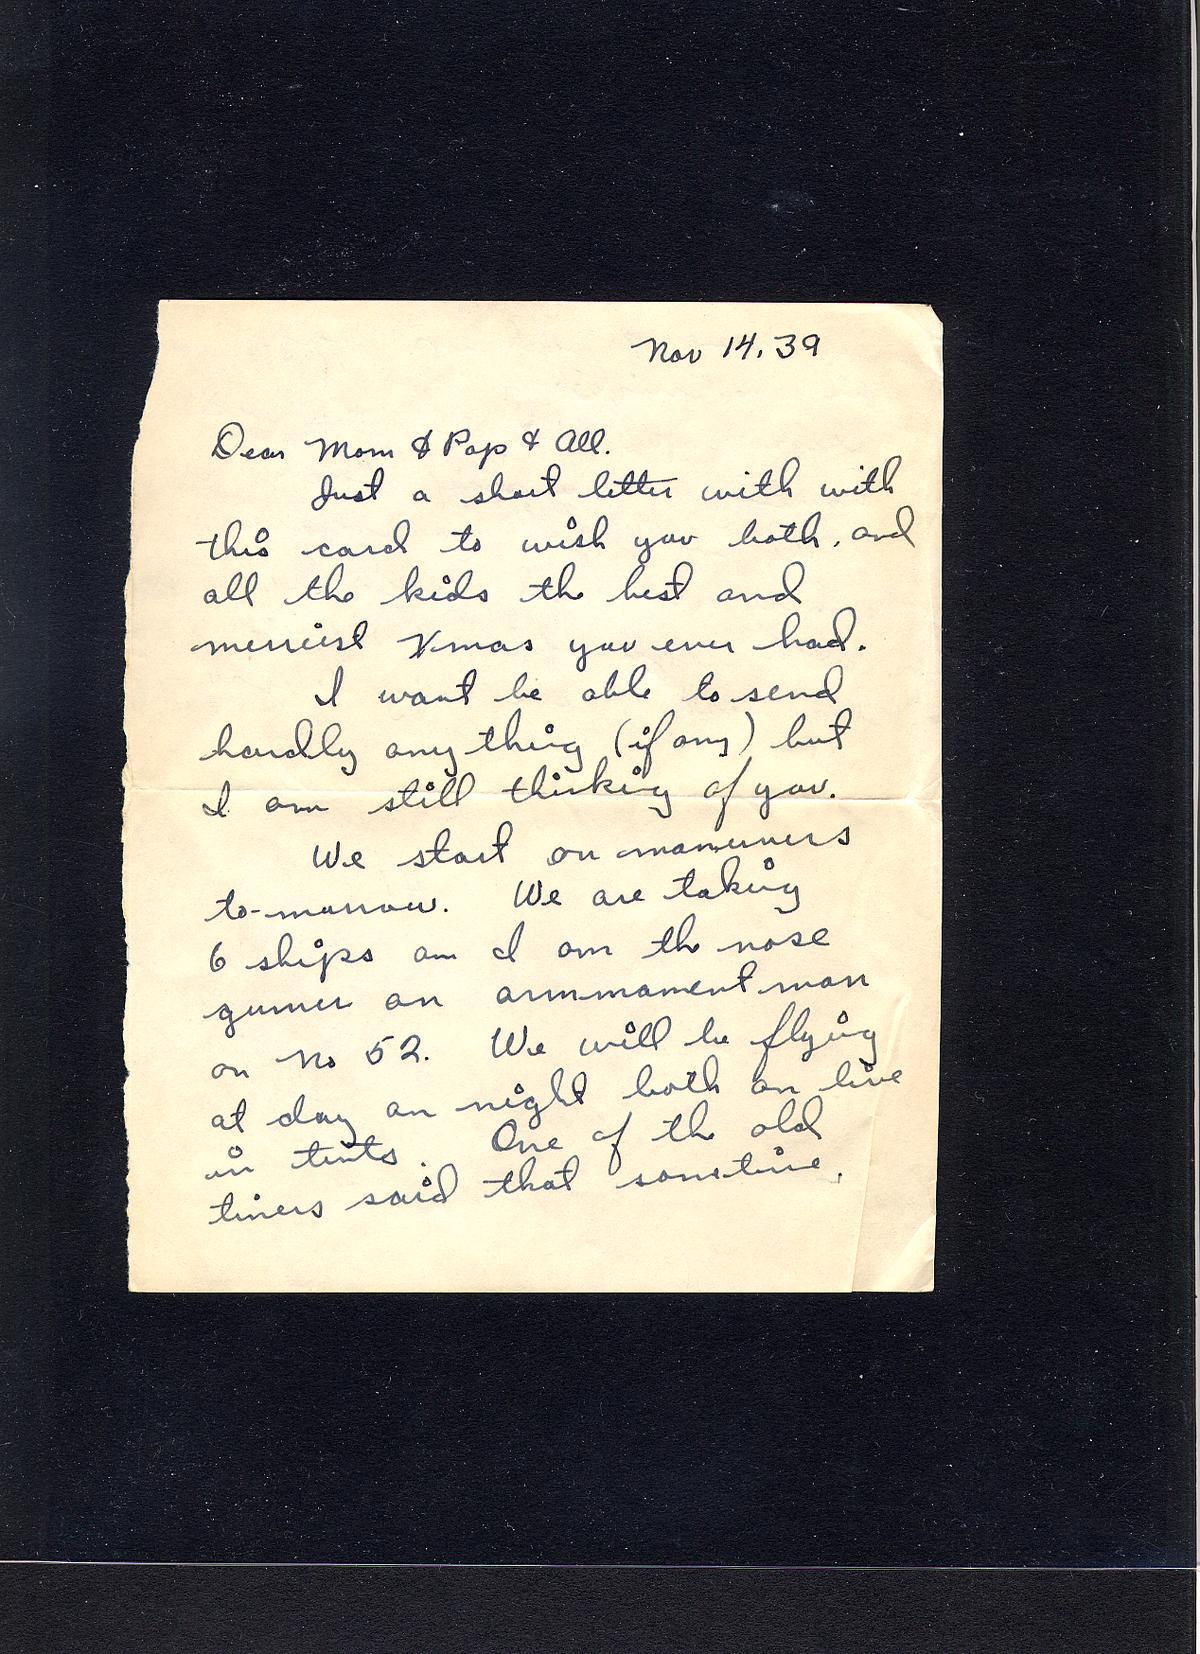 Nov 14. 39
Dear Mom & Pop & All.
Just a short letter with with
this card to wish you both, and
all the kids the best and
merriest Xmas you ever had.
I want be able to send
hardly any thing (if any) but
I am still thinking of you.
We start on manuvers
to-morrow. We are taking
6 ships an I am the nose
gunner an armmament man
on No 52. We will be flying
at day an night both an live
in tents. One of the old
timers said that sometime,